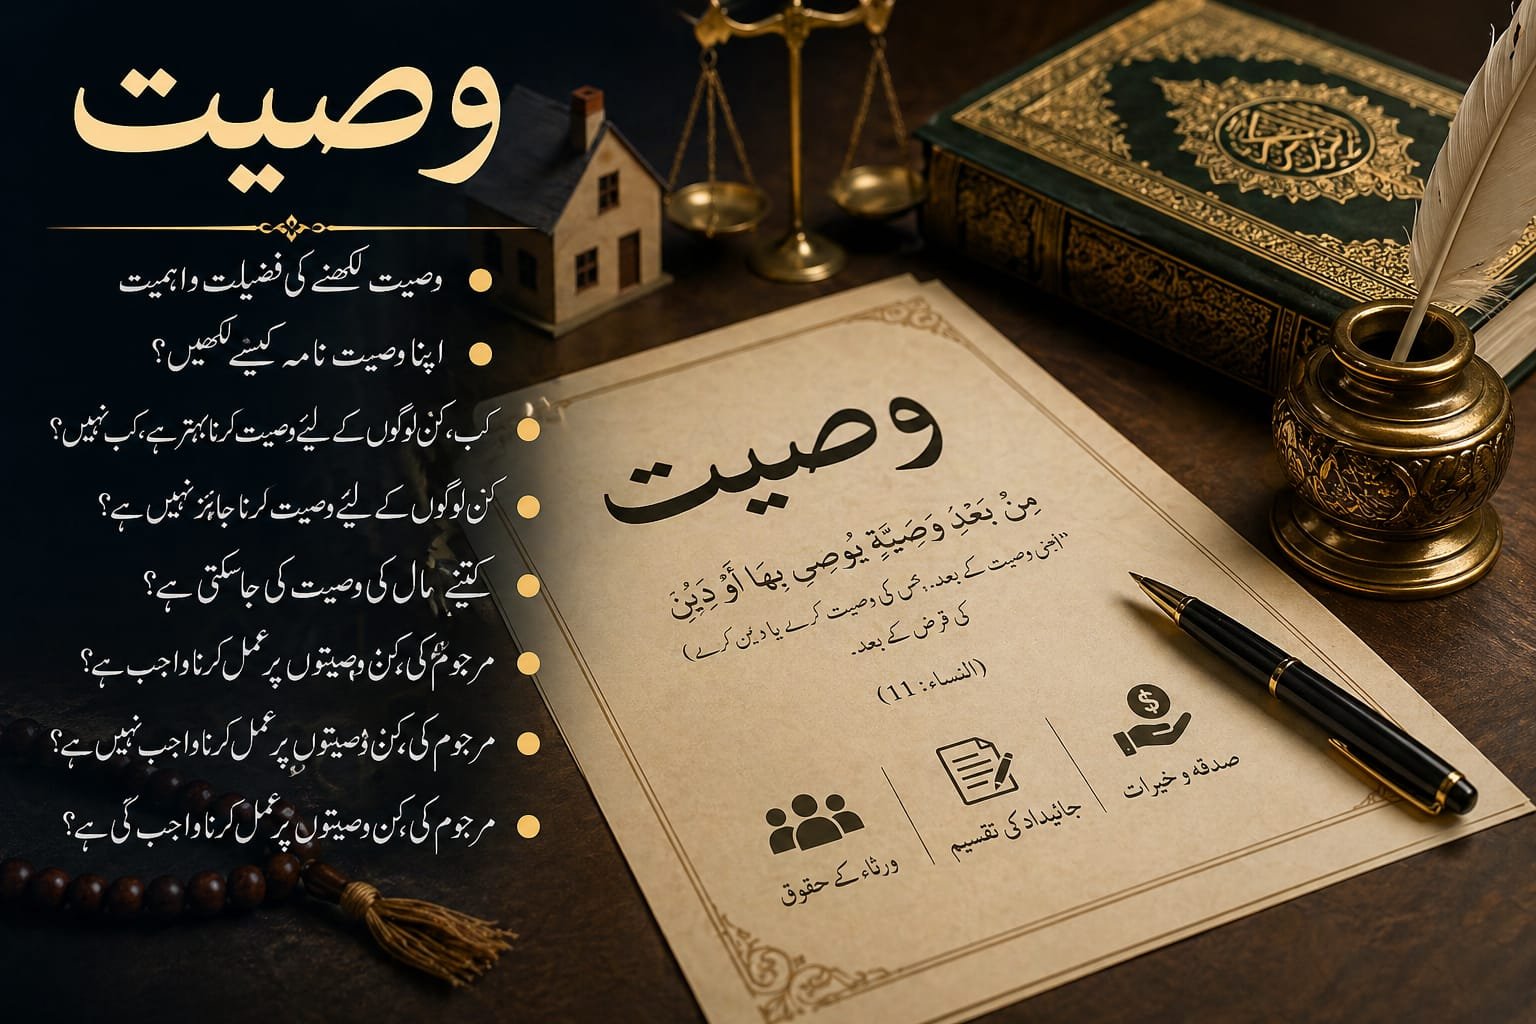 وصیت
وصیت لکھنے کی فضیلت و اہمیت
اپنا وصیت نامہ کیسے لکھیں؟
کب، کن لوگوں کے لئے وصیت کرنا بہتر ہے، کب نہیں؟
کن لوگوں کے لئے وصیت کرنا جائز نہیں ہے؟
کتنے مال کی وصیت کی جاسکتی ہے؟
مرحوم کی، کن وصیتوں پر عمل کرنا واجب ہے؟
مرحوم کی، کن وصیتوں پر عمل کرنا واجب نہیں ہے؟
مرحوم کی، کن وصیتوں پر عمل کرنا واجب گی ہے؟
وصیت
مِنْ بَعْدِ وَصِيَّةٍ يُوصِي بِهَا أَوْ دَيْنٍ
وصیت کے بعد.. جس کی وصیت کرے یا دین کرے)
کی قرض کے بعد.
(النساء: 11)
ورثاء کے حقوق
جائیداد کی تقسیم
صدقہ و خیرات